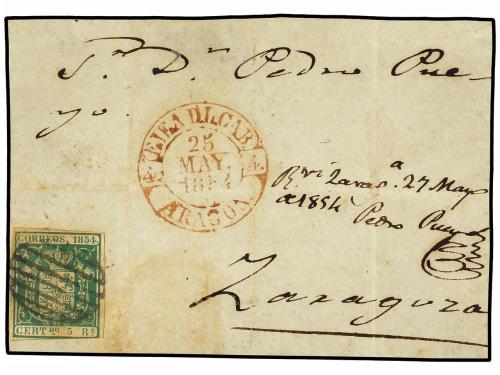 Sr. Dn. Pedro Pue-
yo.
TEJEA D.L. CAB.
25
MAY.
1854
4 4
ARAGON
Rvi Zarasa. 27 Mayo
de 1854 Pedro Pueyo
Zaragoza
CORREOS, 1854.
CERTdo. 5 Rs.